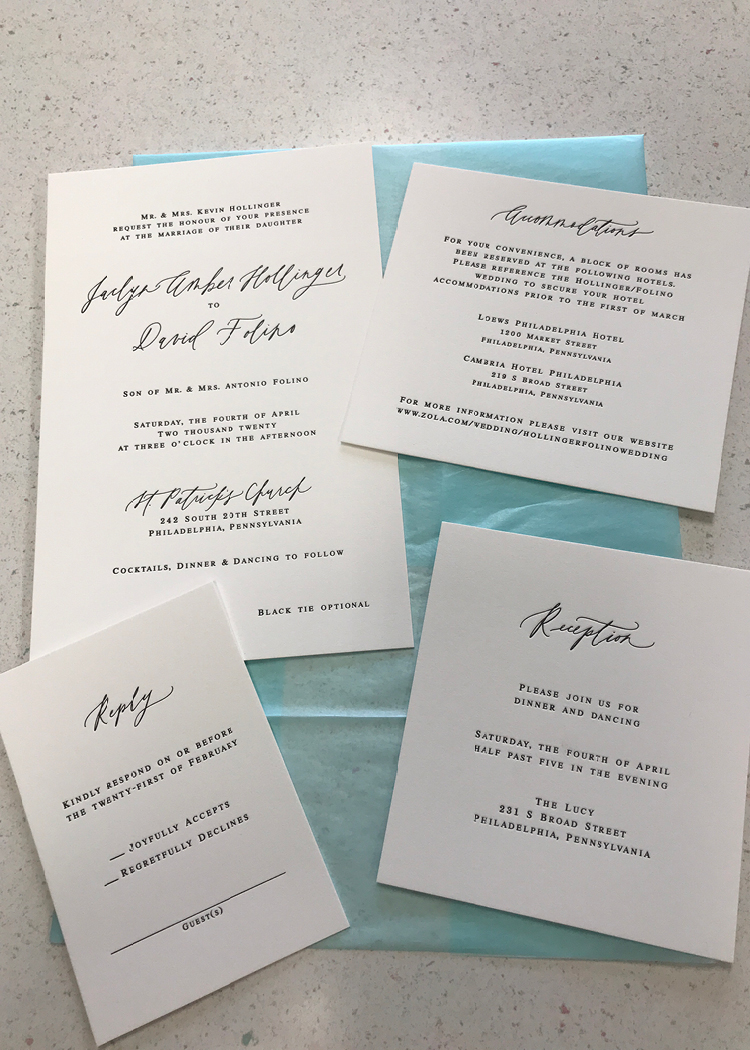 Mr. & Mrs. Kevin Hollinger
request the honour of your presence
at the marriage of their daughter
Jaclyn Amber Hollinger
to
David Folino
Son of Mr. & Mrs. Antonio Folino
Saturday, the fourth of April
Two thousand twenty
at three o'clock in the afternoon
St. Patricks Church
242 South 20th Street
Philadelphia, Pennsylvania
Cocktails, Dinner & Dancing to follow
Black tie optional
Accommodations
For your convenience, a block of rooms has
been reserved at the following hotels.
Please reference the Hollinger/Folino
wedding to secure your hotel
accommodations prior to the first of March
Loews Philadelphia Hotel
1200 Market Street
Philadelphia, Pennsylvania
Cambria Hotel Philadelphia
219 S Broad Street
Philadelphia, Pennsylvania
For more information please visit our website
www.zola.com/wedding/hollingerfolinowedding
Reply
Kindly respond on or before
the twenty-first of February
__ Joyfully Accepts
__ Regretfully Declines
Guest(s)
Reception
Please join us for
dinner and dancing
Saturday, the fourth of April
half past five in the evening
The Lucy
231 S Broad Street
Philadelphia, Pennsylvania